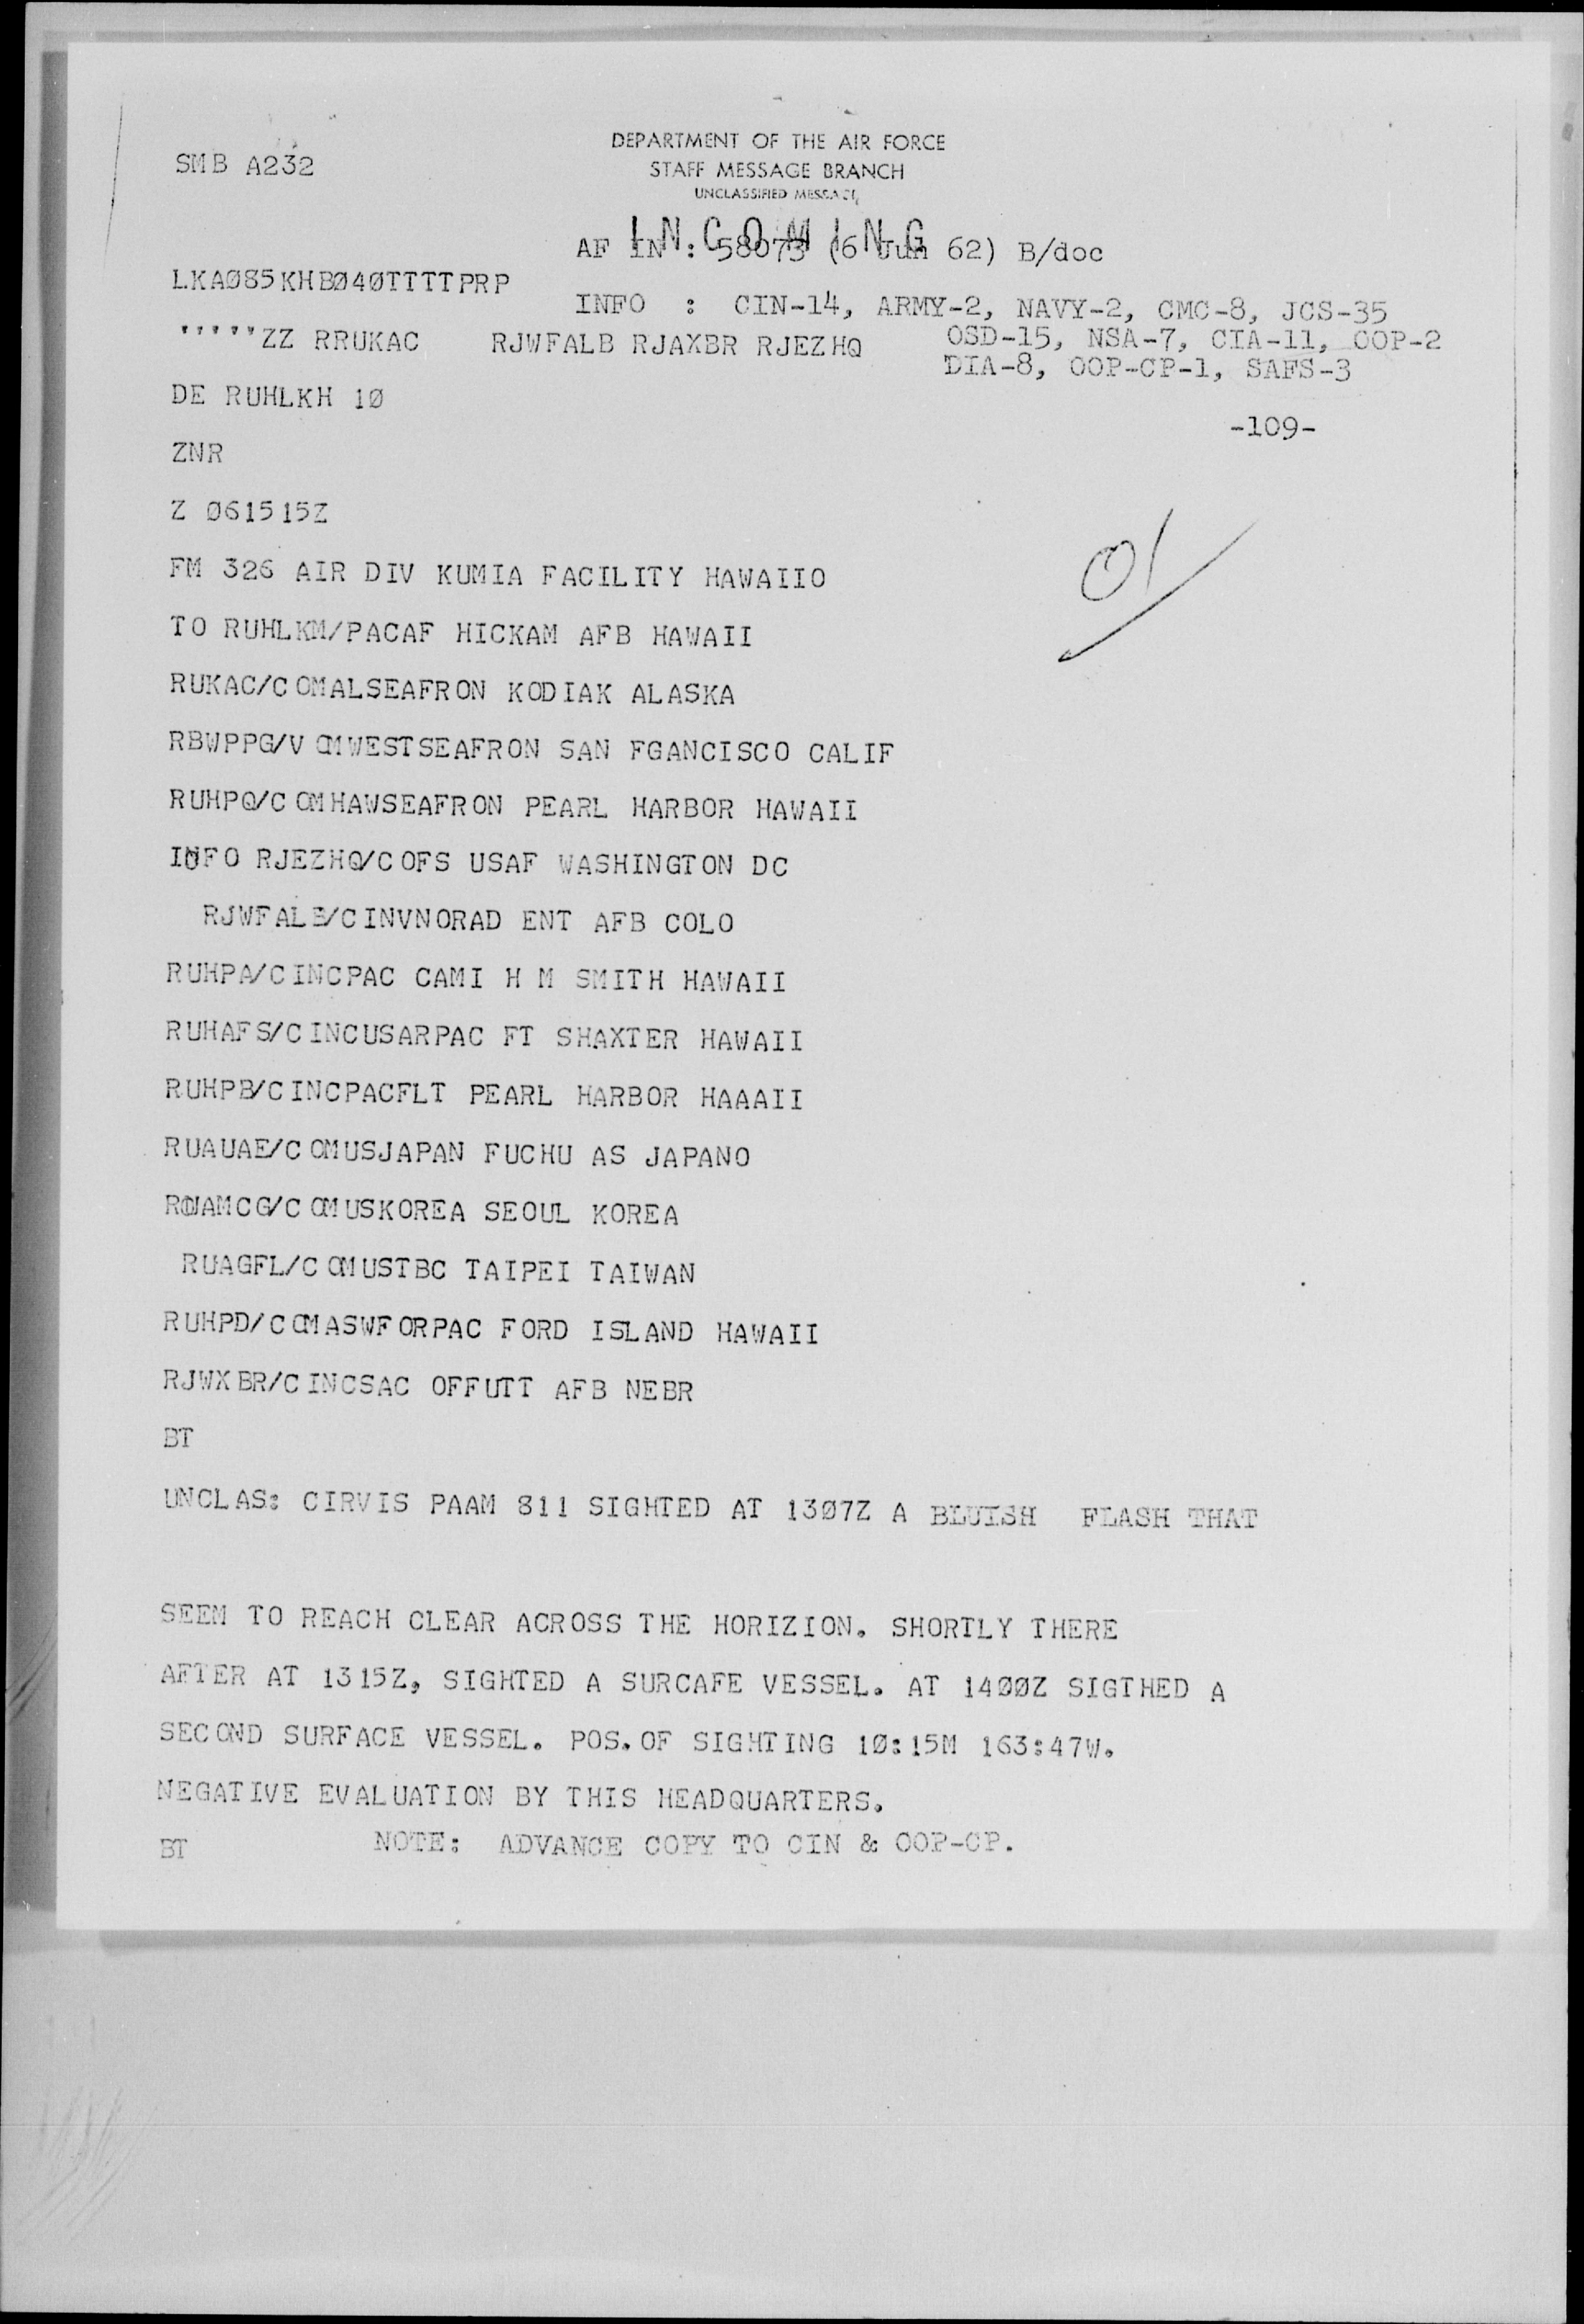 DEPARTMENT OF THE AIR FORCE
SMB A232
STAFF MESSAGE BRANCH
UNCLASSIFIED MESSAGE
INCOMING
AF IN : 58073 (6 Jun 62) B/doc
LKAØ85KHBØ4ØTTTTPRP
INFO : CIN-14, ARMY-2, NAVY-2, CMC-8, JCS-35
'''''ZZ RRUKAC RJWFALB RJAXBR RJEZHQ
OSD-15, NSA-7, CIA-11, OOP-2
DIA-8, OOP-CP-1, SAFS-3
DE RUHLKH 1Ø
-109-
ZNR
Z Ø61515Z
FM 326 AIR DIV KUMIA FACILITY HAWAIIO
TO RUHLKM/PACAF HICKAM AFB HAWAII
RUKAC/COMALSEAFRON KODIAK ALASKA
RBWPPG/V OMWESTSEAFRON SAN FGANCISCO CALIF
RUHPQ/COMHAWSEAFRON PEARL HARBOR HAWAII
INFO RJEZHQ/COFS USAF WASHINGTON DC
RJWFALB/CINVNORAD ENT AFB COLO
RUHPA/CINCPAC CAMI H M SMITH HAWAII
RUHAFS/CINCUSARPAC FT SHAXTER HAWAII
RUHPB/CINCPACFLT PEARL HARBOR HAAAII
RUAUAE/COMUSJAPAN FUCHU AS JAPANO
COMUSKOREA SEOUL KOREA
RUAGFL/COMUSTBC TAIPEI TAIWAN
RUHPD/COMASWFORPAC FORD ISLAND HAWAII
RJWXBR/CINCSAC OFFUTT AFB NEBR
BT
UNCLAS: CIRVIS PAAM 811 SIGHTED AT 13Ø7Z A BLUISH FLASH THAT
SEEM TO REACH CLEAR ACROSS THE HORIZION. SHORTLY THERE
AFTER AT 1315Z, SIGHTED A SURCAFE VESSEL. AT 14ØØZ SIGTHED A
SECOND SURFACE VESSEL. POS. OF SIGHTING 1Ø:15M 163:47W.
NEGATIVE EVALUATION BY THIS HEADQUARTERS.
BT NOTE: ADVANCE COPY TO CIN & OOP-CP.